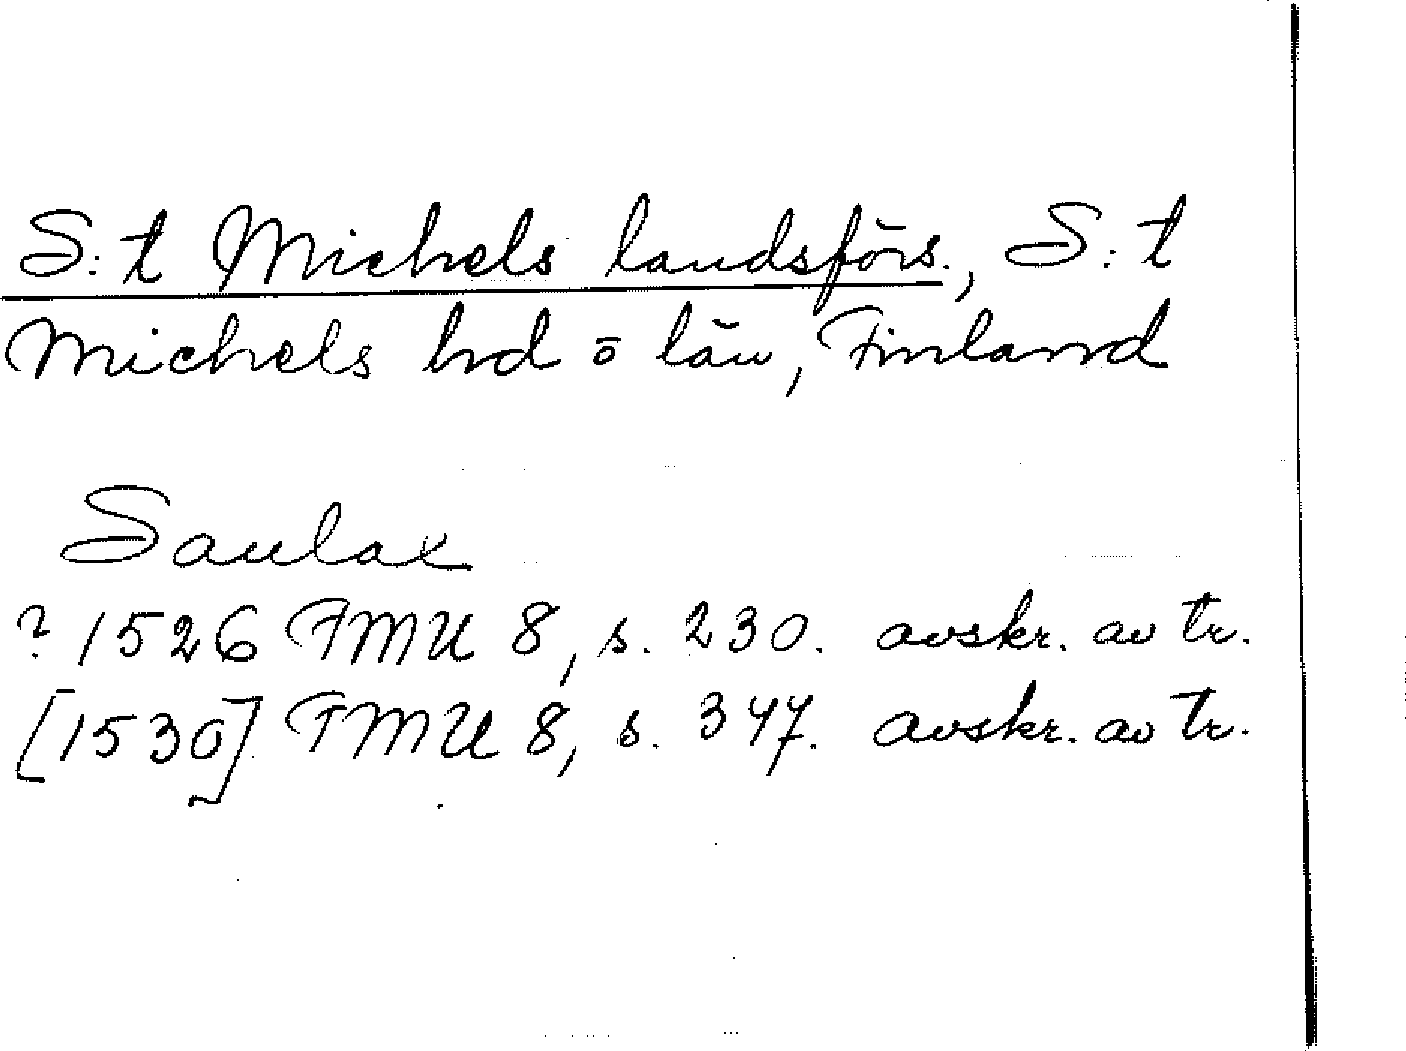 S:t Michels landsförs., S:t
Michels hrd o län, Finland
Saulax
? 1526 FMU 8, s. 230. avskr. av tr.
[1530] FMU 8, s. 347. avskr. av tr.